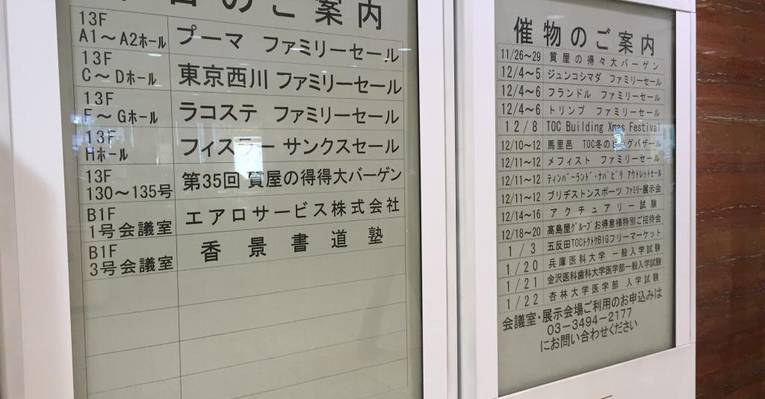 日のご案内
13F
A1～A2ホール プーマ ファミリーセール
13F
C～Dホール 東京西川 ファミリーセール
13F
E～Gホール ラコステ ファミリーセール
13F
Hホール フィスラー サンクスセール
13F
130～135号 第35回 質屋の得得大バーゲン
B1F
1号会議室 エアロサービス株式会社
B1F
3号会議室 香景書道塾
催物のご案内
11/26～29 質屋の得々大バーゲン
12/4～5 ジュンコシマダ ファミリーセール
12/4～6 フランドル ファミリーセール
12/4～6 トリンプ ファミリーセール
12/8 TOC Building Xmas Festival
12/10～12 馬里邑 TOC冬の グバザール
12/11～12 メフィスト ファミリーセール
12/11～12 ティンバーランド・ナパピリ アウトレットセール
12/11～12 ブリヂストンスポーツ ファミリー展示会
12/14～16 アクチュアリー試験
12/18～20 高島屋グループお得意様特別ご招待会
1/3 五反田TOCトクトクBIGフリーマーケット
1/20 兵庫医科大学 一般入学試験
1/21 金沢医科歯科大学医学部一般入学試験
1/22 杏林大学医学部 入学試験
会議室・展示会場ご利用のお申込みは
03-3494-2177
にお問い合わせください